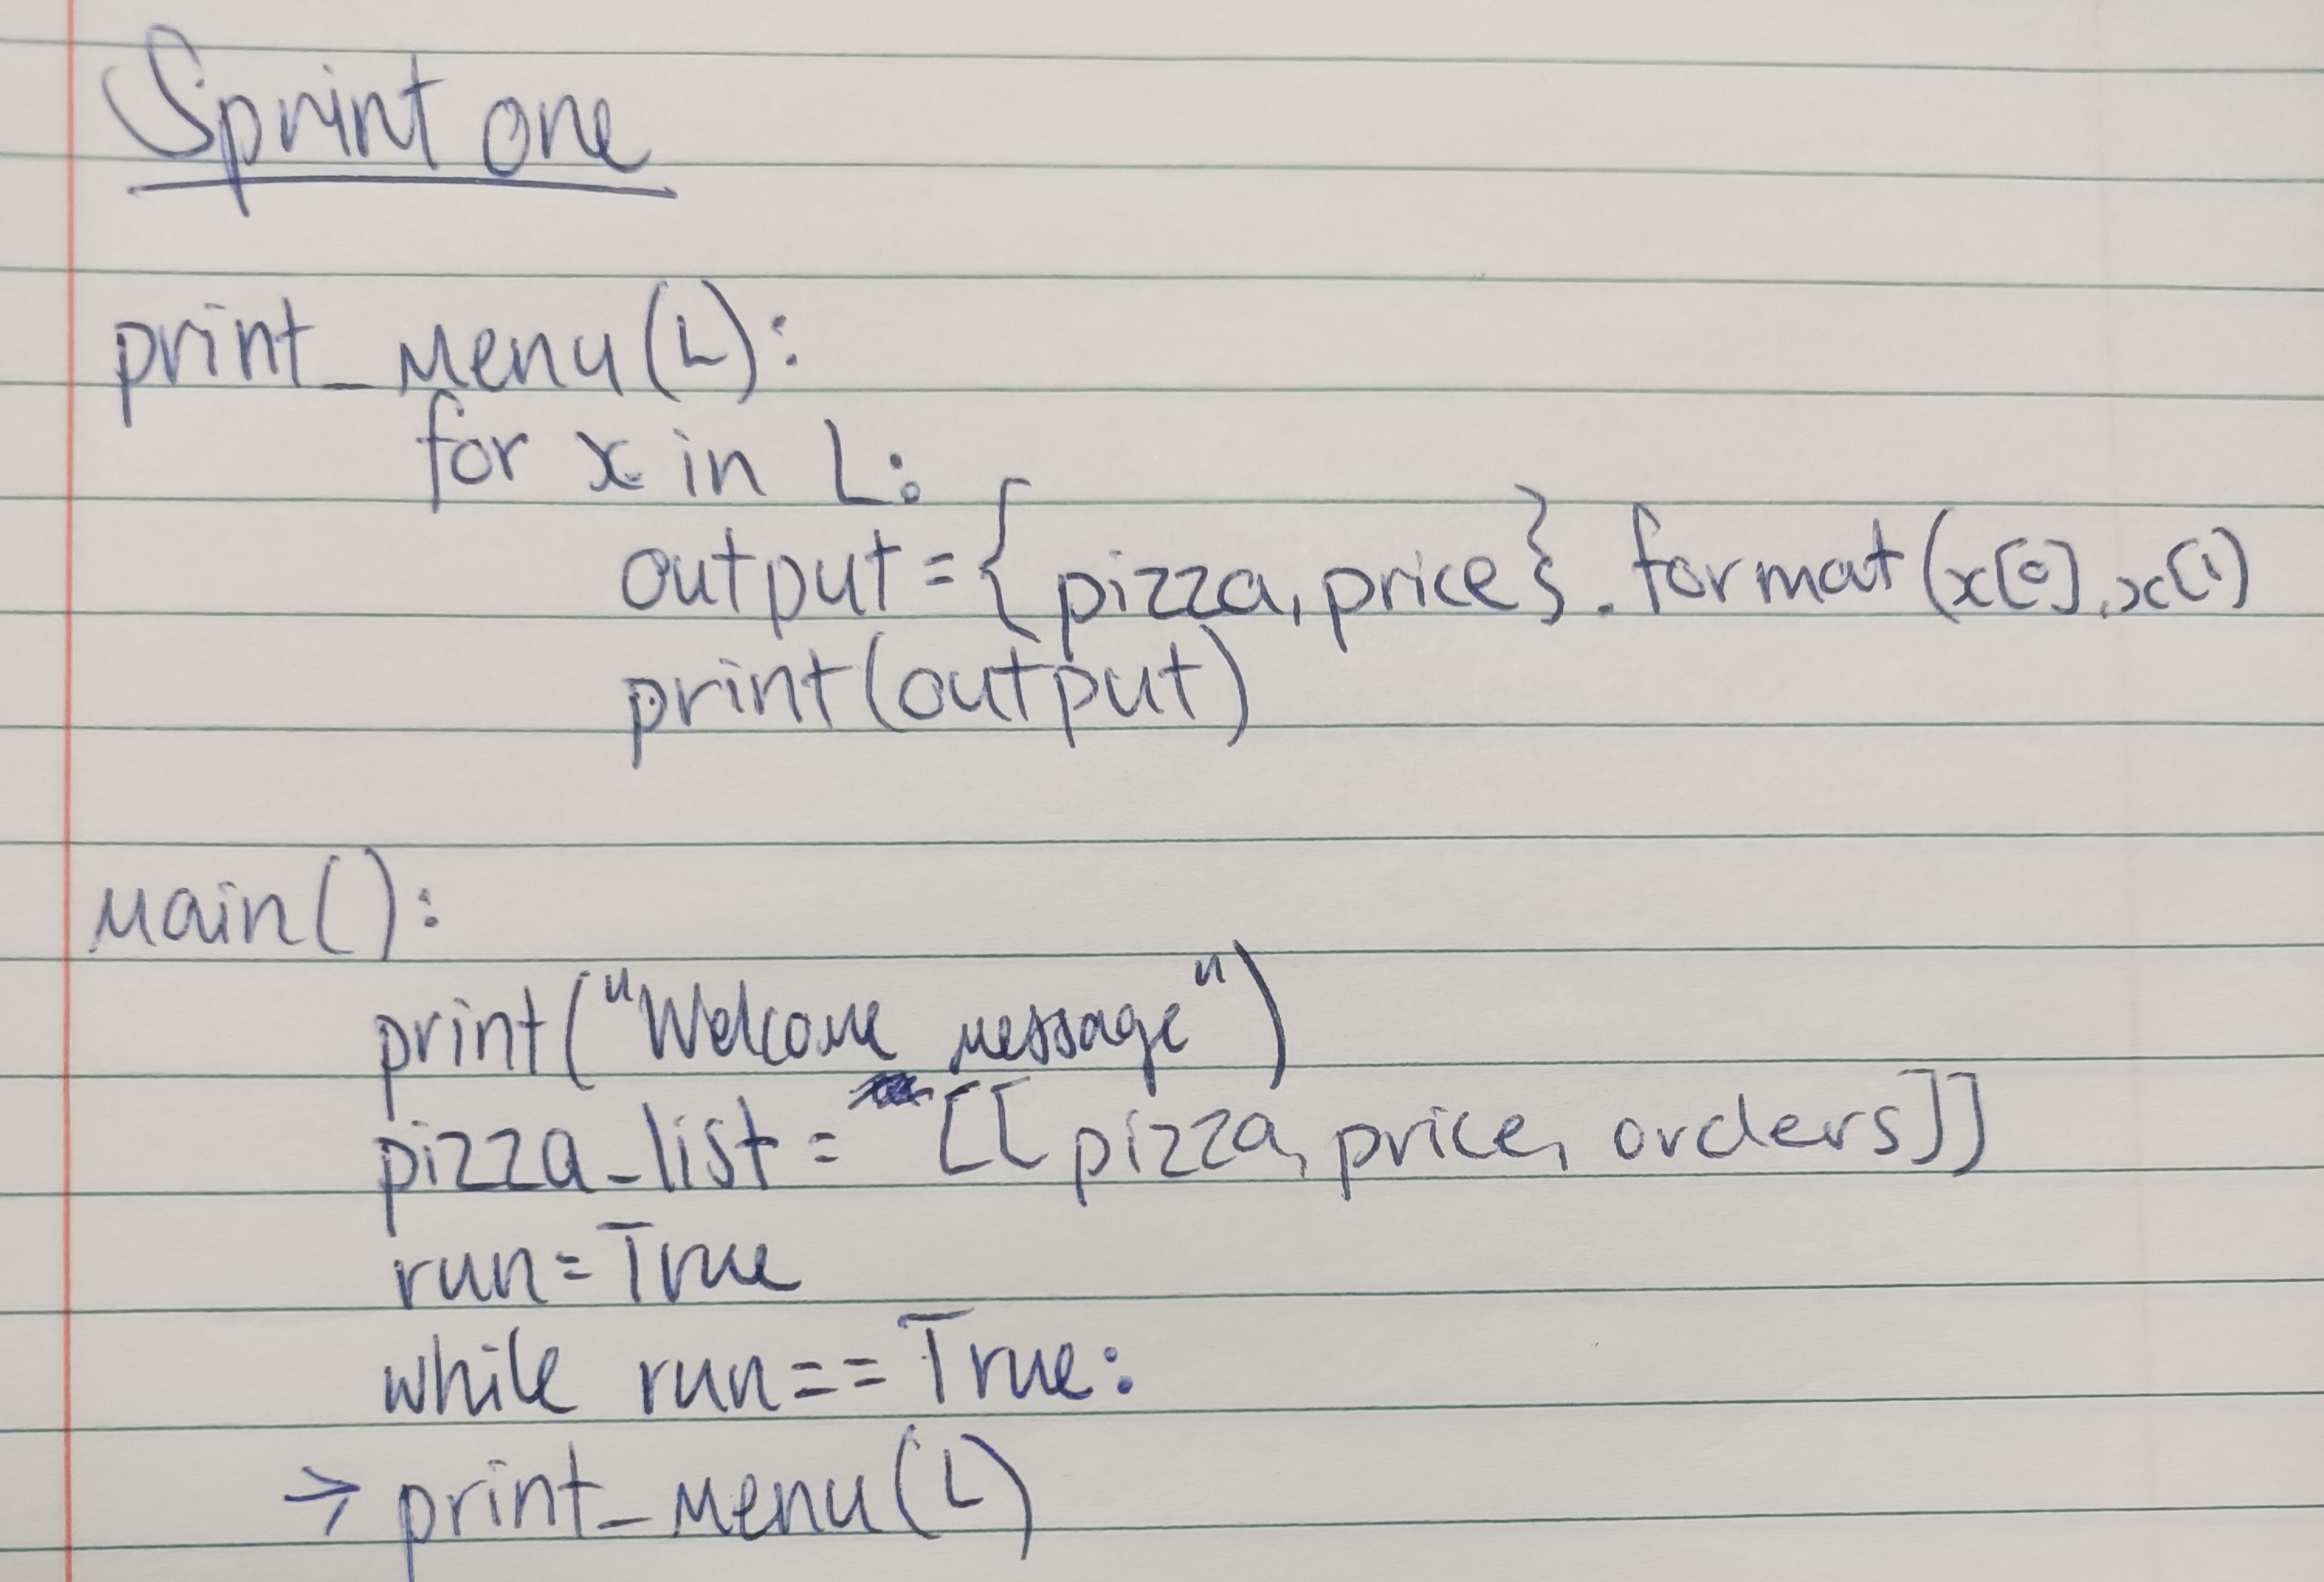 Sprint one
print_menu(L):
for x in L:
output={pizza,price}.format(x[0],x[1)
print(output)
main():
print("Welcome message")
pizza_list= [[pizza,price,orders]]
run=True
while run==True:
→ print_menu(L)